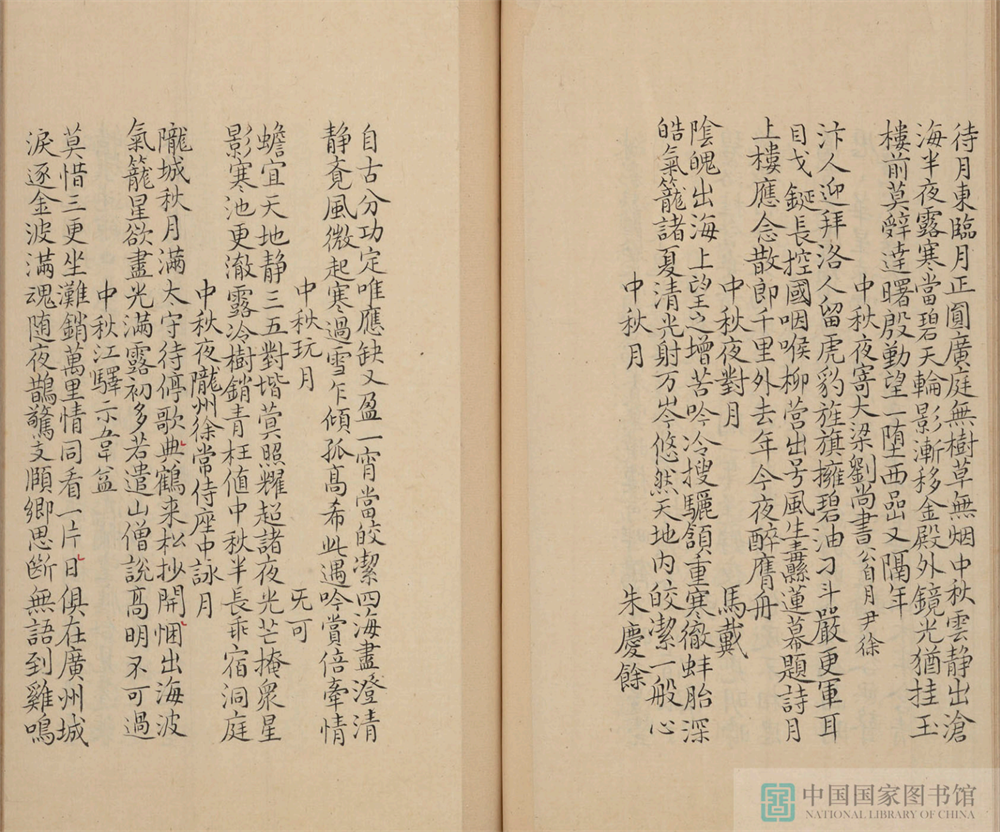 待月東臨月正圓廣庭無樹草無烟中秋雲静出滄
海半夜露寒當碧天輪影漸移金殿外鏡光猶挂玉
樓前莫辤達曙殷勤望一墮西嵒又隔年
中秋夜寄大梁劉尚書公自月尹徐
汴人迎拜洛人留虎豹旌旗擁碧油刁斗嚴更軍耳
目戈鋋長控國咽喉柳營出号風生纛蓮幕題詩月
上樓應念散郎千里外去年今夜醉膺舟
中秋夜對月 馬戴
陰魄出海上望之增苦吟冷搜驪頷重寒徹蚌胎深
皓氣籠諸夏清光射万岑悠然天地内皎潔一般心
中秋月 朱慶餘
自古分功定唯應缺又盈一宵當皎潔四海盡澄清
静竟風微起寒過雪乍傾孤高希此遇吟賞倍牽情
中秋玩月 旡可
蟾宜天地静三五對堦蓂照耀超諸夜光芒掩衆星
影寒池更澈露冷樹銷青枉値中秋半長乖宿洞庭
中秋夜隴州徐常侍座中詠月
隴城秋月滿太守待停歌典鶴来松抄開悃出海波
氣籠星欲盡光滿露初多若遣山僧說高明不可過
中秋江驛示韋益
莫惜三更坐灘銷萬里情同看一片日俱在廣州城
淚逐金波滿魂随夜鵲驚支頤鄉思斷無語到雞鳴
中国国家图书馆
NATIONAL LIBRARY OF CHINA